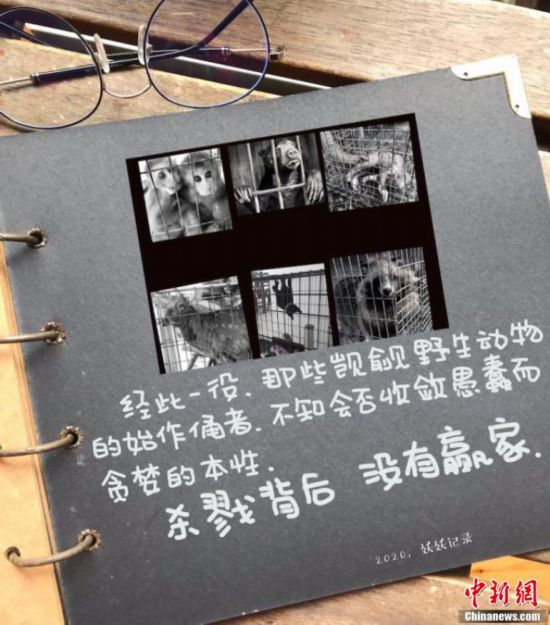 经此一役，那些觊觎野生动物
的始作俑者，不知会否收敛愚蠢而
贪婪的本性．
杀戮背后 没有赢家．
2020，妖妖记录
中新網
Chinanews.com